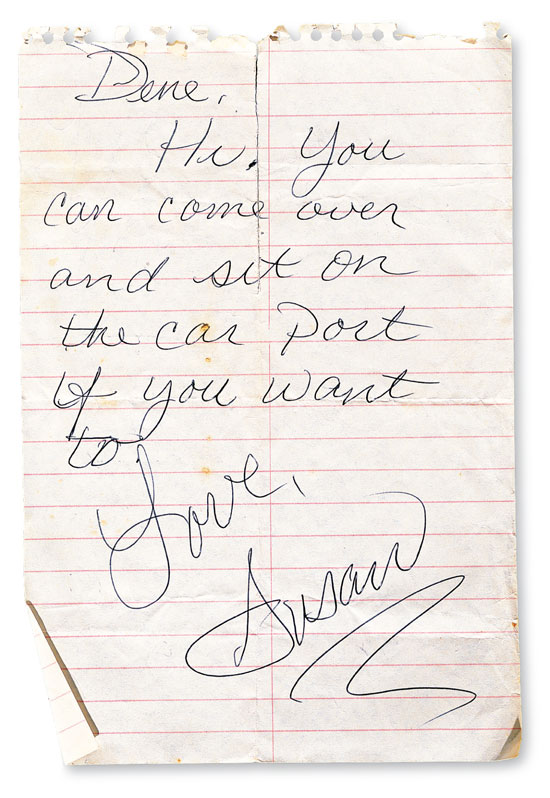 Dene,
Hi. You
can come over
and sit on
the car Port
If you want
to
Love,
Susan